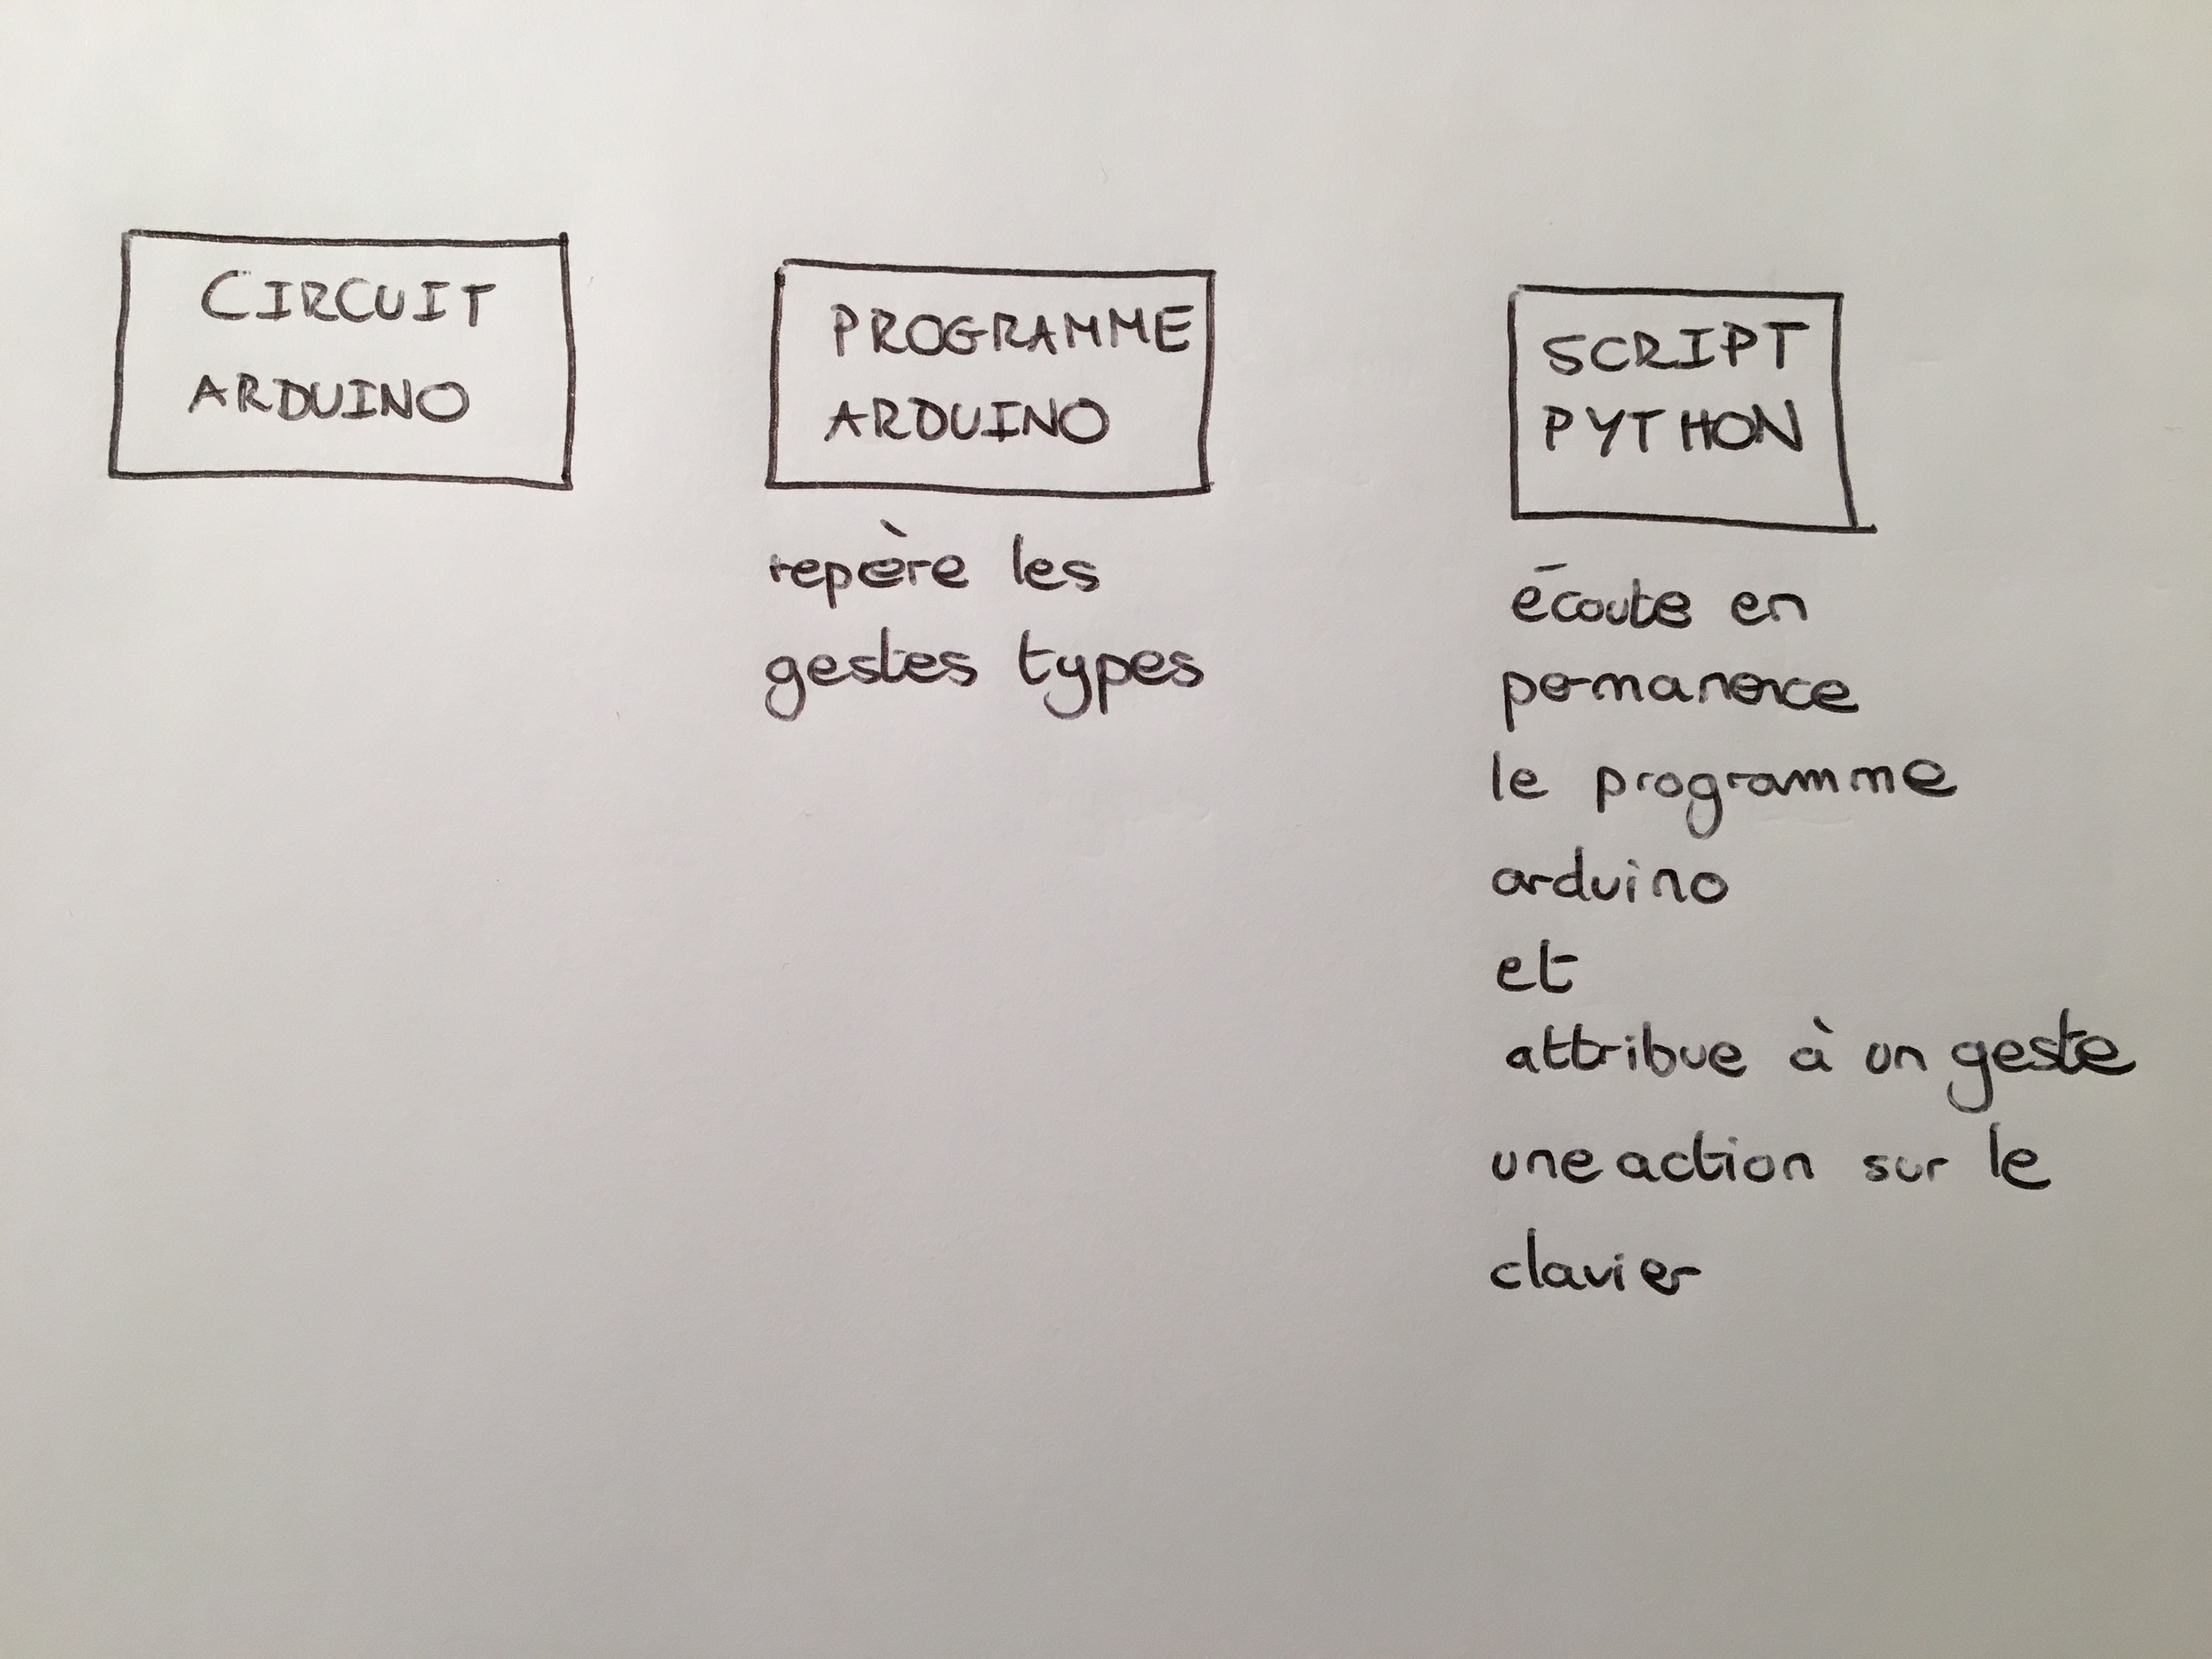 CIRCUIT
ARDUINO
PROGRAMME
ARDUINO
repère les
gestes types
SCRIPT
PYTHON
écoute en
permanence
le programme
arduino
et
attribue à un geste
une action sur le
clavier